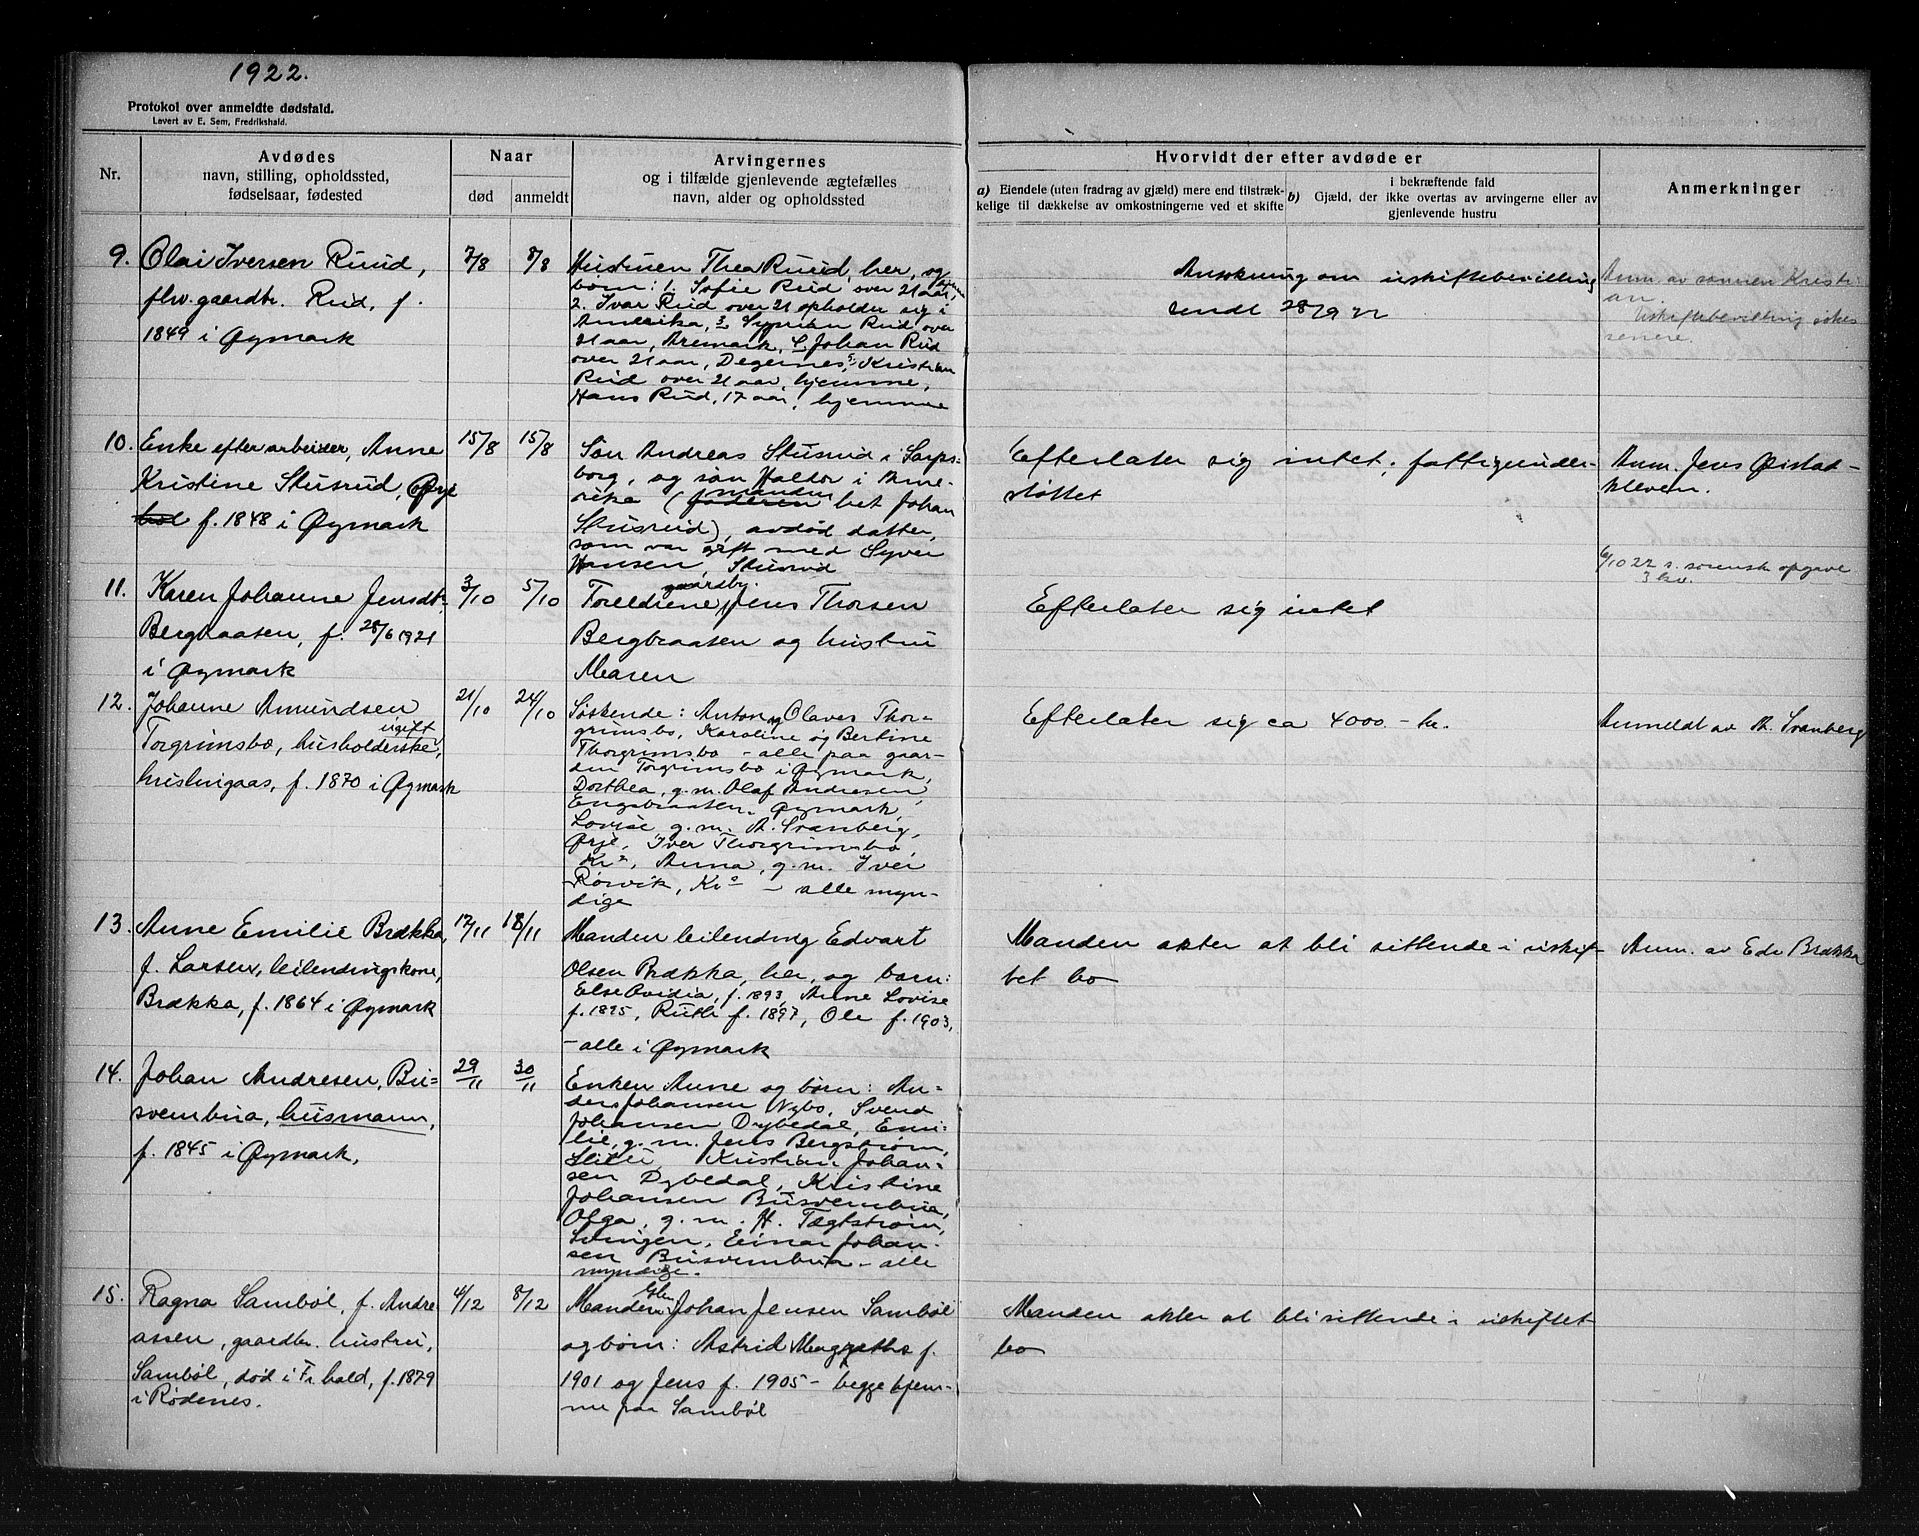 1922.
Protokol over anmeldte dødsfald.
Levert av E. Sem, Fredrikshald.
Nr.
Avdødes
navn, stilling, opholdssted,
fødselsaar, fødested
Naar
død
anmeldt
Arvingernes
og i tilfælde gjenlevende ægtefælles
navn, alder og opholdssted
Hvorvidt der efter avdøde er
a) Eiendele (uten fradrag av gjæld) mere end tilstræk-
kelige til dækkelse av omkostningerne ved et skifte
i bekræftende fald
b) Gjæld, der ikke overtas av arvingerne eller av
gjenlevende hustru
Anmerkninger
9. Olai Iversen Ruud,
flv. gaardbr. Rud, f.
1849 i Øymark
7/8
8/8
Hustruen Thea Ruud, her, og
børn: 1. Sofie Rud, over 21 aar, hjemme,
2. Ivar Rud over 21 opholder sig i
Amerika, 3. Rud over
21 aar, Aremark, 4. Johan Rud
over 21 aar, Degernes, 5. Kristian
Rud over 21 aar, hjemme,
Hans Rud, 17 aar, hjemme
Ansøkning om uskiftebevilling
sendt 28/9 22
Anm. av sønnen Kristi-
an.
Uskiftebevilling søkes
senere.
10. Enke efter arbeider, Anne
Kristine Stusrud, Ørje
f. 1848 i Øymark
15/8
15/8
Søn Andreas Stusrud i Sarps-
borg, og søn Haldor i Ame-
rika (faderen manden het Johan
Stusrud), avdød datter,
som var gift med Syver
Hansen, Stusrud
Efterlater sig intet, fattigunder-
støttet
Anm. Jens Ørstad-
kleven.
6/10 22 s. sorensk opgave
3 kv.
11. Karen Johanne Jensdt-
Bergbraaten, f. 28/6 1921
i Øymark
3/10
5/10
Foreldrene, gaardbr. Jens Thorsen
Bergbraaten og hustru
Maren
Efterlater sig intet
12. Johanne Amundsen
Torgrimsbø, ugift husholderske,
f. 1870 i Øymark
21/10
24/10
Søskende: Anton og Olaves Thor-
grimsbø, Karoline og Bertine
Thorgrimsbø - alle paa gaar-
den Torgrimsbø i Øymark,
Dorthea, g.m. Olaf Andresen,
Engebraaten, Øymark,
Lovise g.m. A. Svanberg,
Ørje, Iver Thorgrimsbø,
Kra, Anna, g.m. Iver
Rørvik, Kra - alle myn-
dige
Efterlater sig ca 4000.- kr.
Anmeldt av A. Svanberg
13. Anne Emilie Brækka,
f. Larsen, leilendingskone,
Brækka, f. 1864 i Øymark
17/11
18/11
Manden leilending Edvart
Olsen Brækka, her, og barn:
Else Ovidia, f. 1893, Anne Lovise
f. 1895, Ruth f. 1897, Ole f. 1903,
- alle i Øymark
Manden akter at bli sittende i uskif-
tet bo
Anm. av Edv Brækka
14. Johan Andresen, Bu-
svembua, husmann,
f. 1845 i Øymark,
29/11
30/11
Enken Anne og børn: An-
ders Johansen Nybo, Svend
Johansen Dybedal, Emi-
lie, g.m. Jens Bergstrøm,
Kristian Johan-
sen Dybedal, Kristine
Johansen Busvembua,
Olga, g.m. H. Tægtstrøm,
Svingen, Einar Johan-
sen Busvembua - alle
myndige.
15. Ragna Sambøl, f. Andre
assen, gaardbr. hustru,
Sambøl, død i Fr.hald, f. 1879
i Rødenes.
4/12
8/12
Manden Johan Jensen Sambøl
og børn: Astrid f.
1901 og Jens f. 1905 - begge hjem-
me paa Sambøl
Manden akter at bli sittende i uskiftet
bo